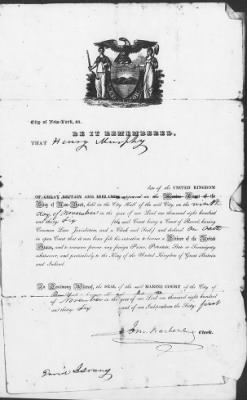 City of New-York, ss.
BE IT REMEMBERED,
THAT Henry Murphy
late of the UNITED KINGDOM
OF GREAT BRITAIN AND IRELAND appeared in the Marine Court of the
City of New-York, held in the City Hall of the said City, on the ninth
day of November in the year of our Lord one thousand eight hundred
and thirty six (the said Court being a Court of Record, having
Common Law Jurisdiction, and a Clerk and Seal) and declared on Oath
in open Court that it was bona fide his intention to become a Citizen of the United
States, and to renounce forever any foreign Prince, Potentate, State or Sovereignty
whatever, and particularly to the King of the United Kingdom of Great Britain
and Ireland.
In Testimony Whereof, the SEAL of the said MARINE COURT of the City of
New-York is hereunto
of November in the year of our Lord one thousand eight hundred
and thirty six and of our Independence the Sixty first
Clerk.
David